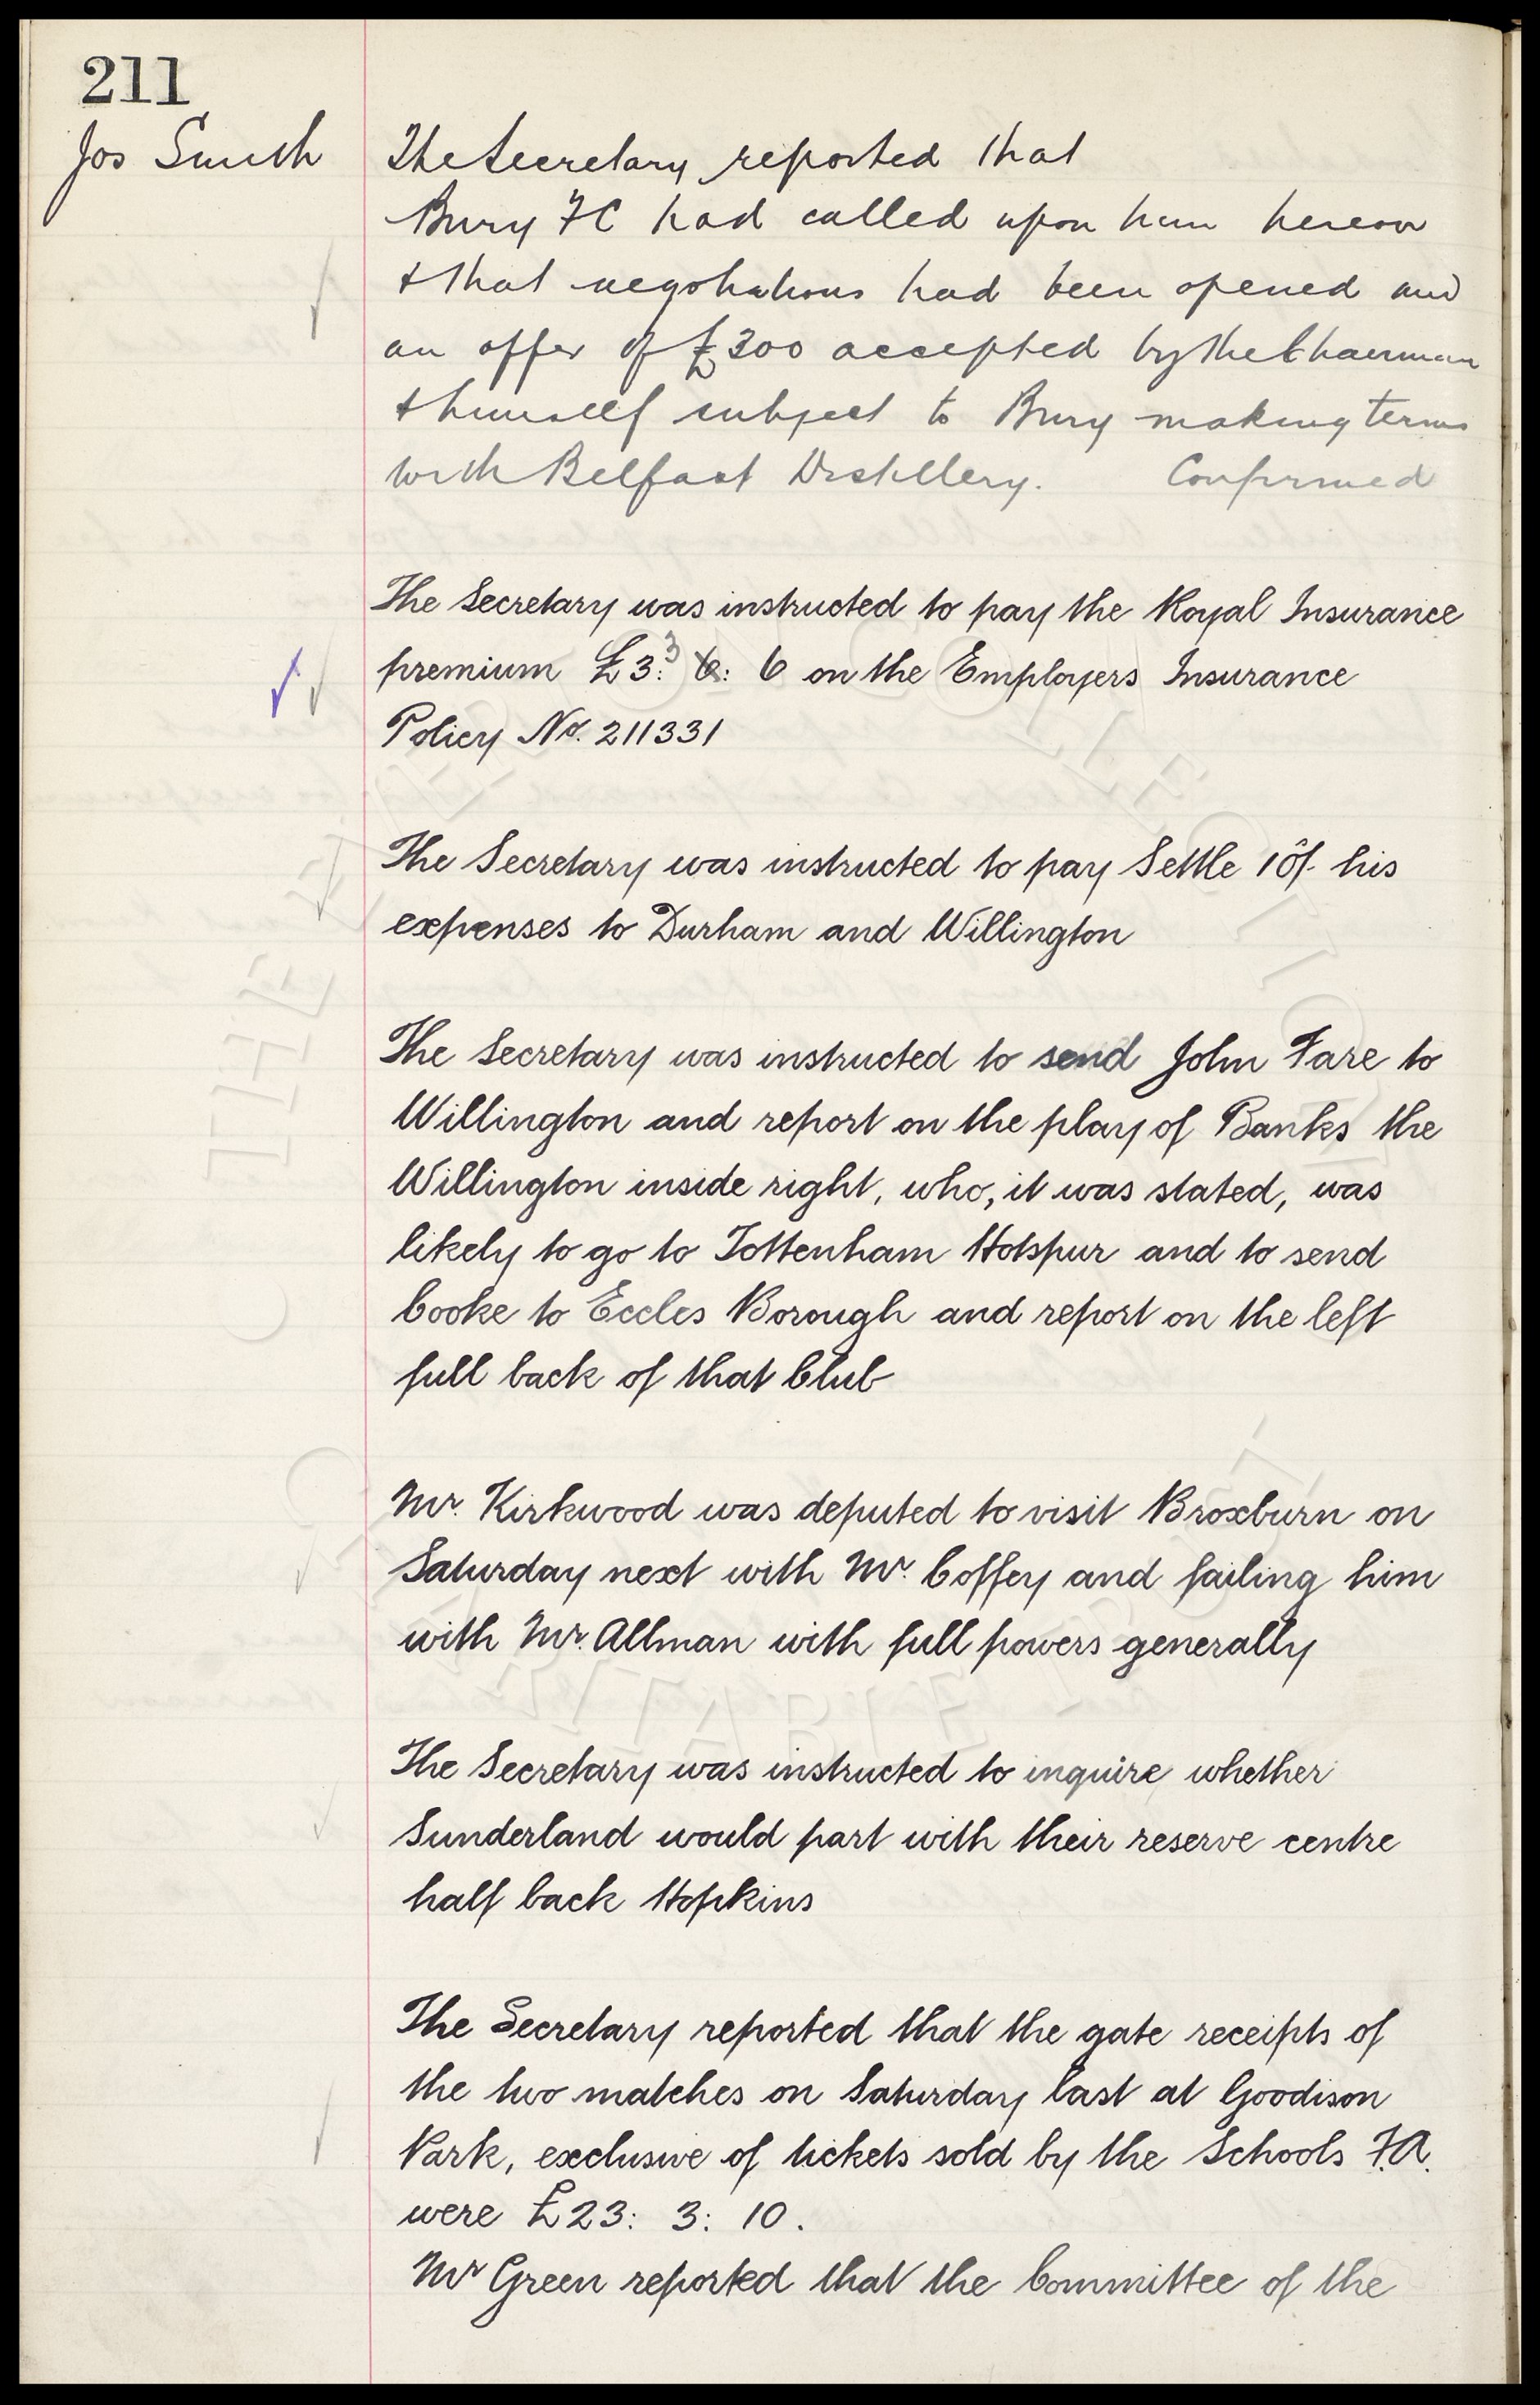 211
Jos Smith
The Secretary reported that
Bury FC had called upon him hereon
& that negotiations had been opened and
an offer of £300 accepted by the Chairman
& himself subject to Bury making terms
with Belfast Distillery. Confirmed
The Secretary was instructed to pay the Royal Insurance
premium £3: 3: 6 on the Employers Insurance
Policy No. 211331
The Secretary was instructed to pay Settle 10/- his
expenses to Durham and Willington
The Secretary was instructed to send John Fare to
Willington and report on the play of Banks the
Willington inside right, who, it was stated, was
likely to go to Tottenham Hotspur and to send
Cooke to Eccles Borough and report on the left
full back of that Club
Mr. Kirkwood was deputed to visit Broxburn on
Saturday next with Mr. Coffey and failing him
with Mr. Allman with full powers generally
The Secretary was instructed to inquire whether
Sunderland would part with their reserve centre
half back Hopkins
The Secretary reported that the gate receipts of
the two matches on Saturday last at Goodison
Park, exclusive of tickets sold by the Schools F.A.
were £23: 3: 10.
Mr Green reported that the Committee of the